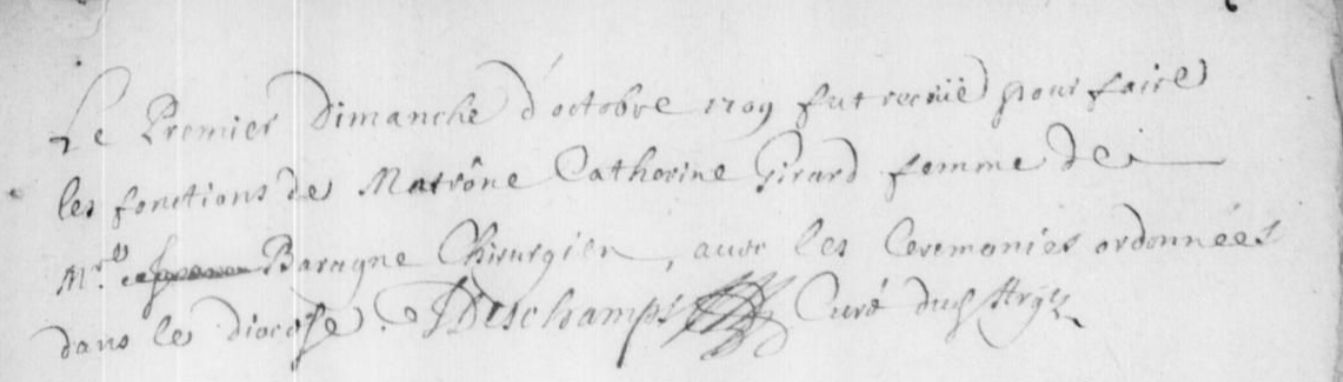 Le Premier Dimanche d'octobre 1709 fut recüe pour faire
les fonctions de Matrône Catherine Girard femme de
Mr. Baragne Chirurgien, avec les Ceremonies ordonnées
dans le diocese. Deschamps Curé